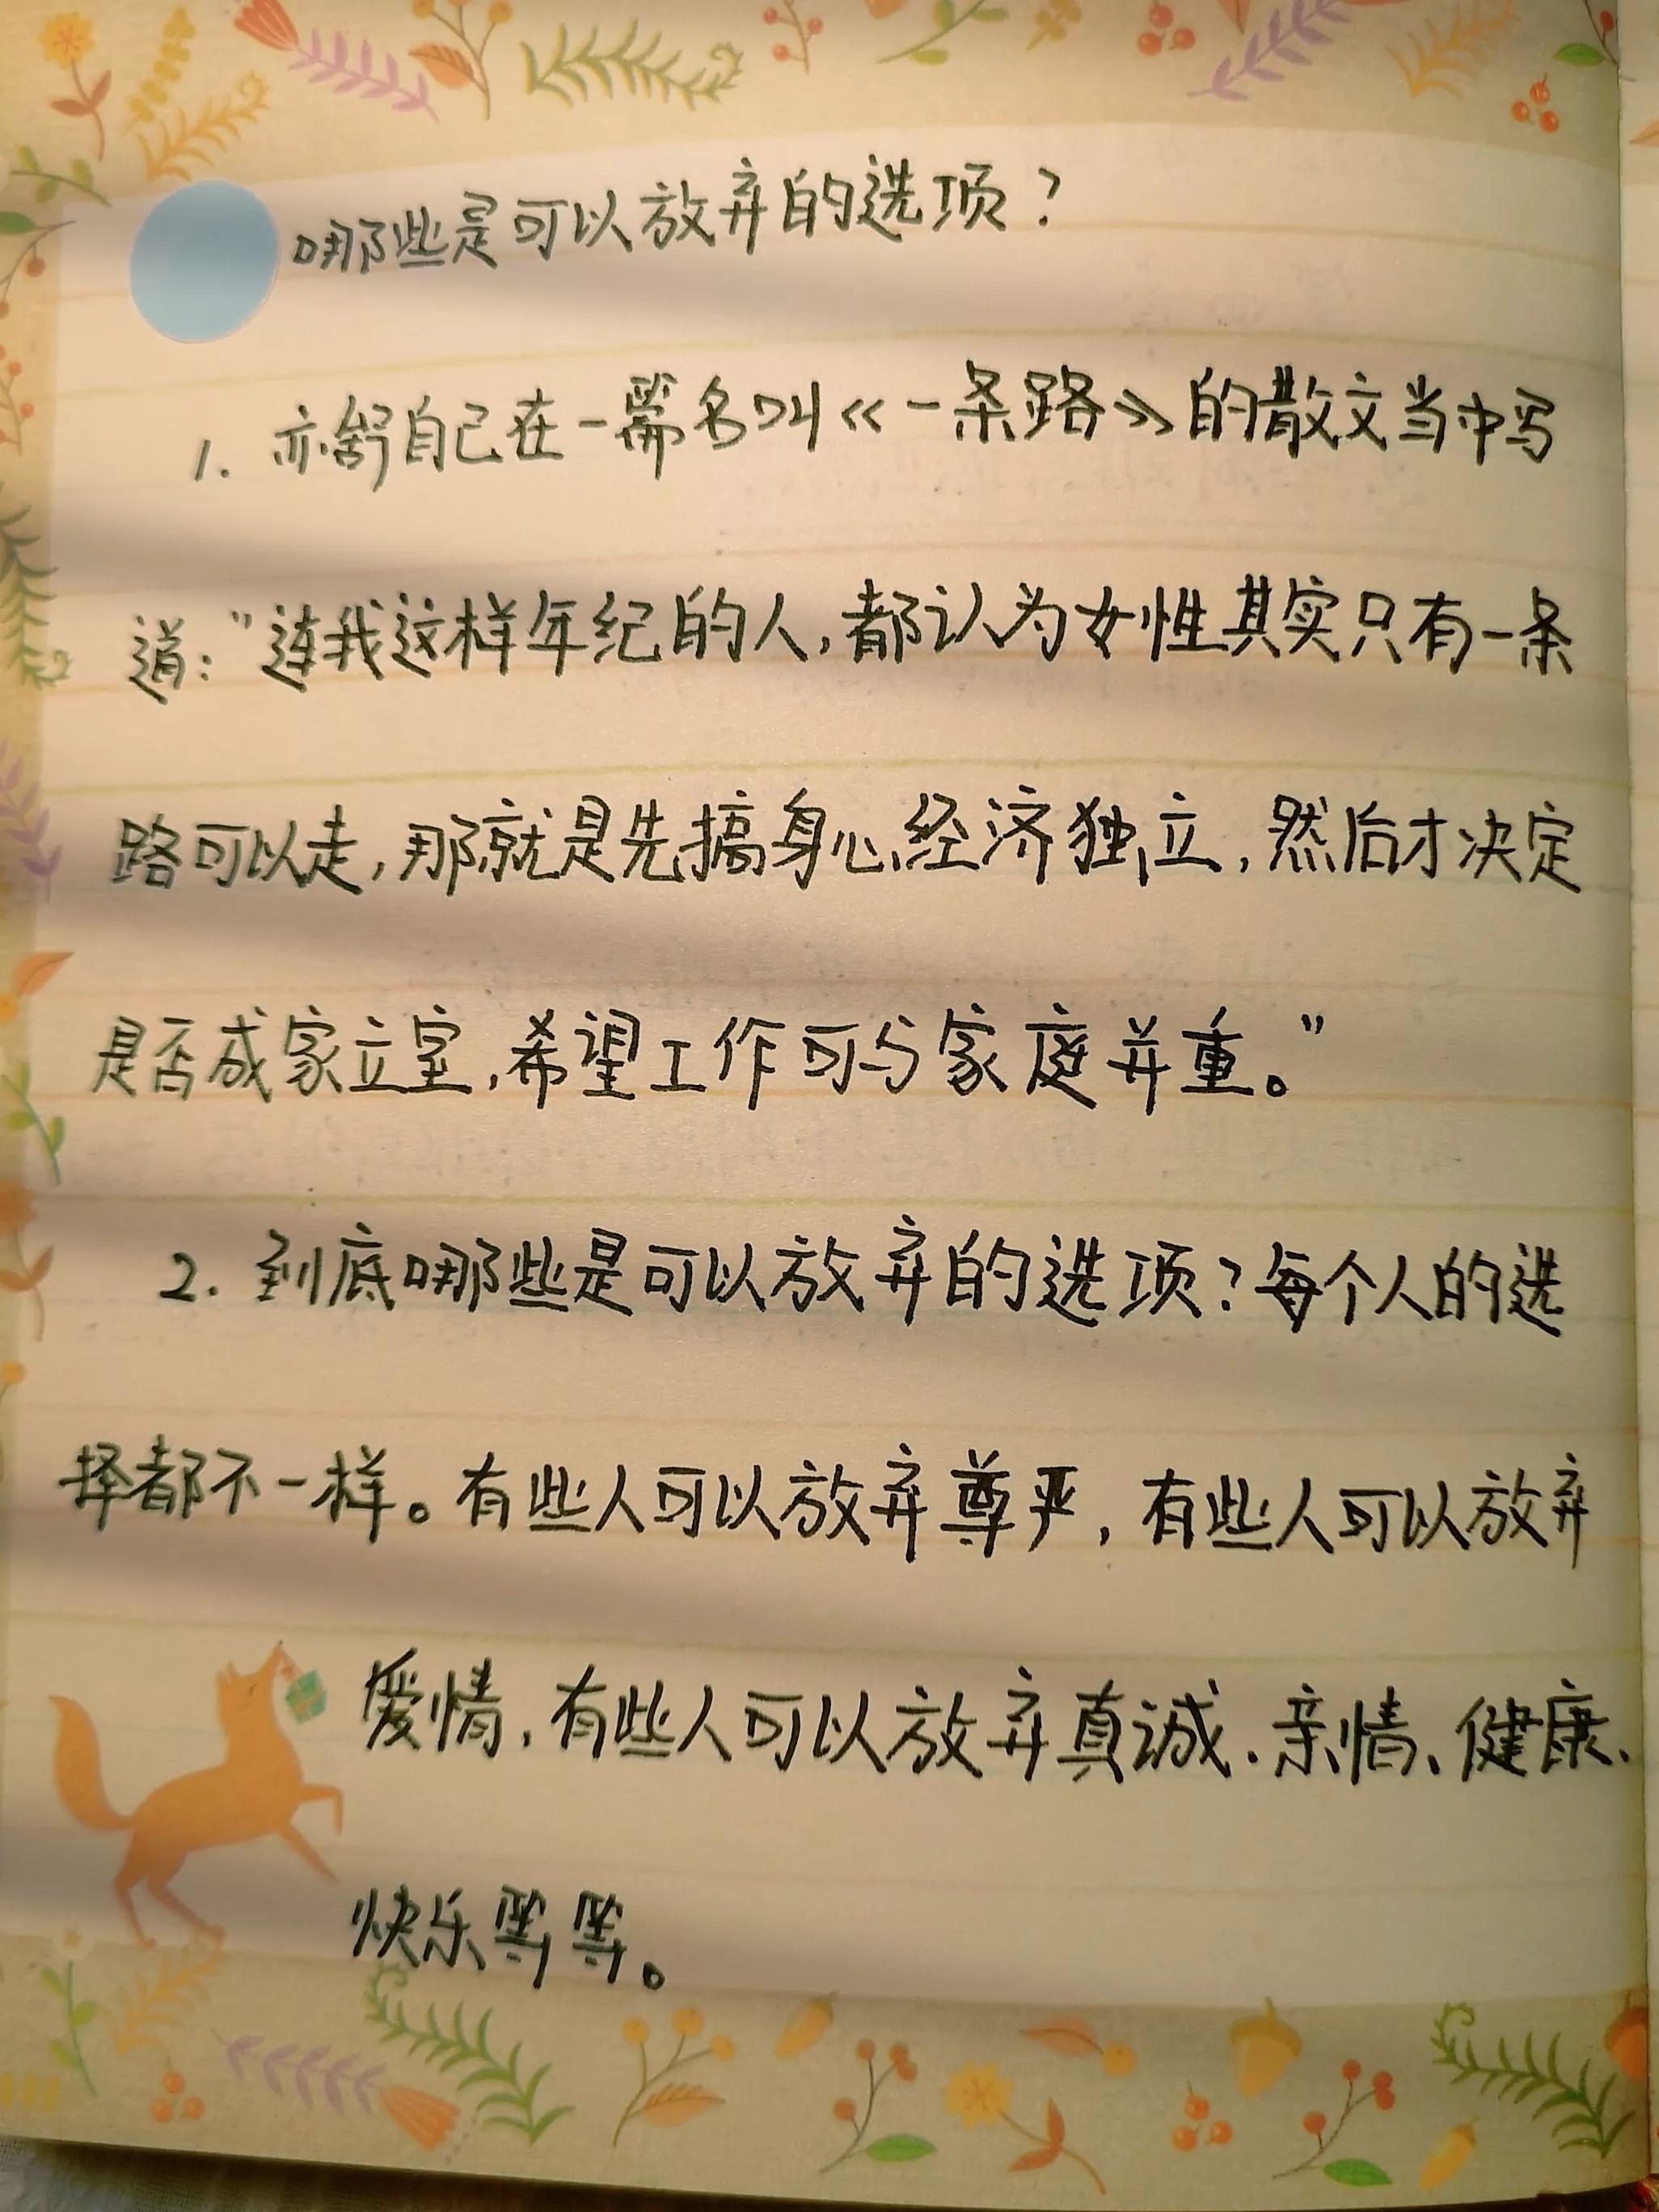 哪些是可以放弃的选项？
1. 亦舒自己在一篇名叫《一条路》的散文当中写
道："连我这样年纪的人，都认为女性其实只有一条
路可以走，那就是先搞身心经济独立，然后才决定
是否成家立室，希望工作可与家庭并重。"
2. 到底哪些是可以放弃的选项？每个人的选
择都不一样。有些人可以放弃尊严，有些人可以放弃
爱情，有些人可以放弃真诚、亲情、健康、
快乐等等。